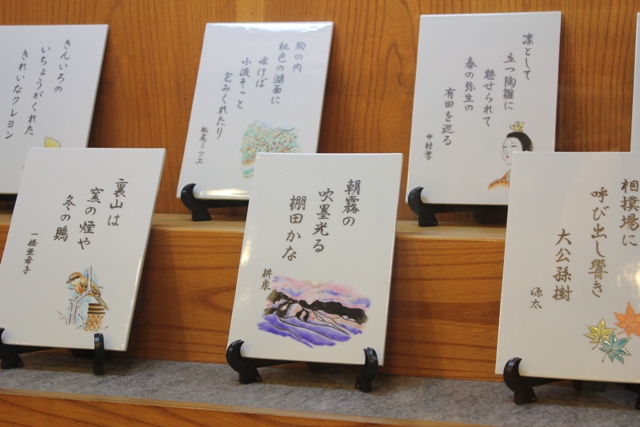 きんいろの
いちょうがくれた
きれいなクレヨン
胸の内
桃色の湖面に
嘆けば
小波そっと
をみくれたり
松尾ミツエ
凛として
立つ陶雛に
魅せられて
春の弥生の
有田を巡る
中村孝
裏山は
窯の煙や
冬の鵙
一橋亜希子
朝霧の
吹墨光る
棚田かな
耕泉
相撲場に
呼び出し響き
大公孫樹
源太